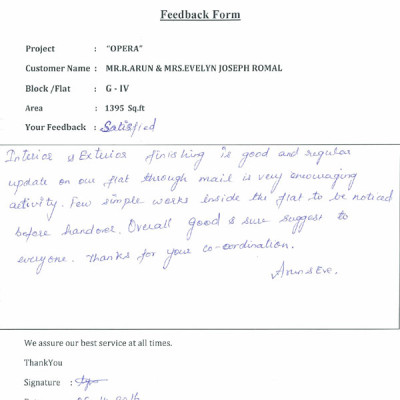 Feedback Form
Project : "OPERA"
Customer Name : MR.R.ARUN & MRS.EVELYN JOSEPH ROMAL
Block /Flat : G - IV
Area : 1395 Sq.ft
Your Feedback : Satisfied
Interior & Exterior finishing is good and regular
update on our flat through mail is very encouraging
activity. Few simple works inside the flat to be noticed
before handover. Overall Good & sure suggest to
everyone. Thanks for your co-cordination.
Arun & Eve.
We assure our best service at all times.
ThankYou
Signature :